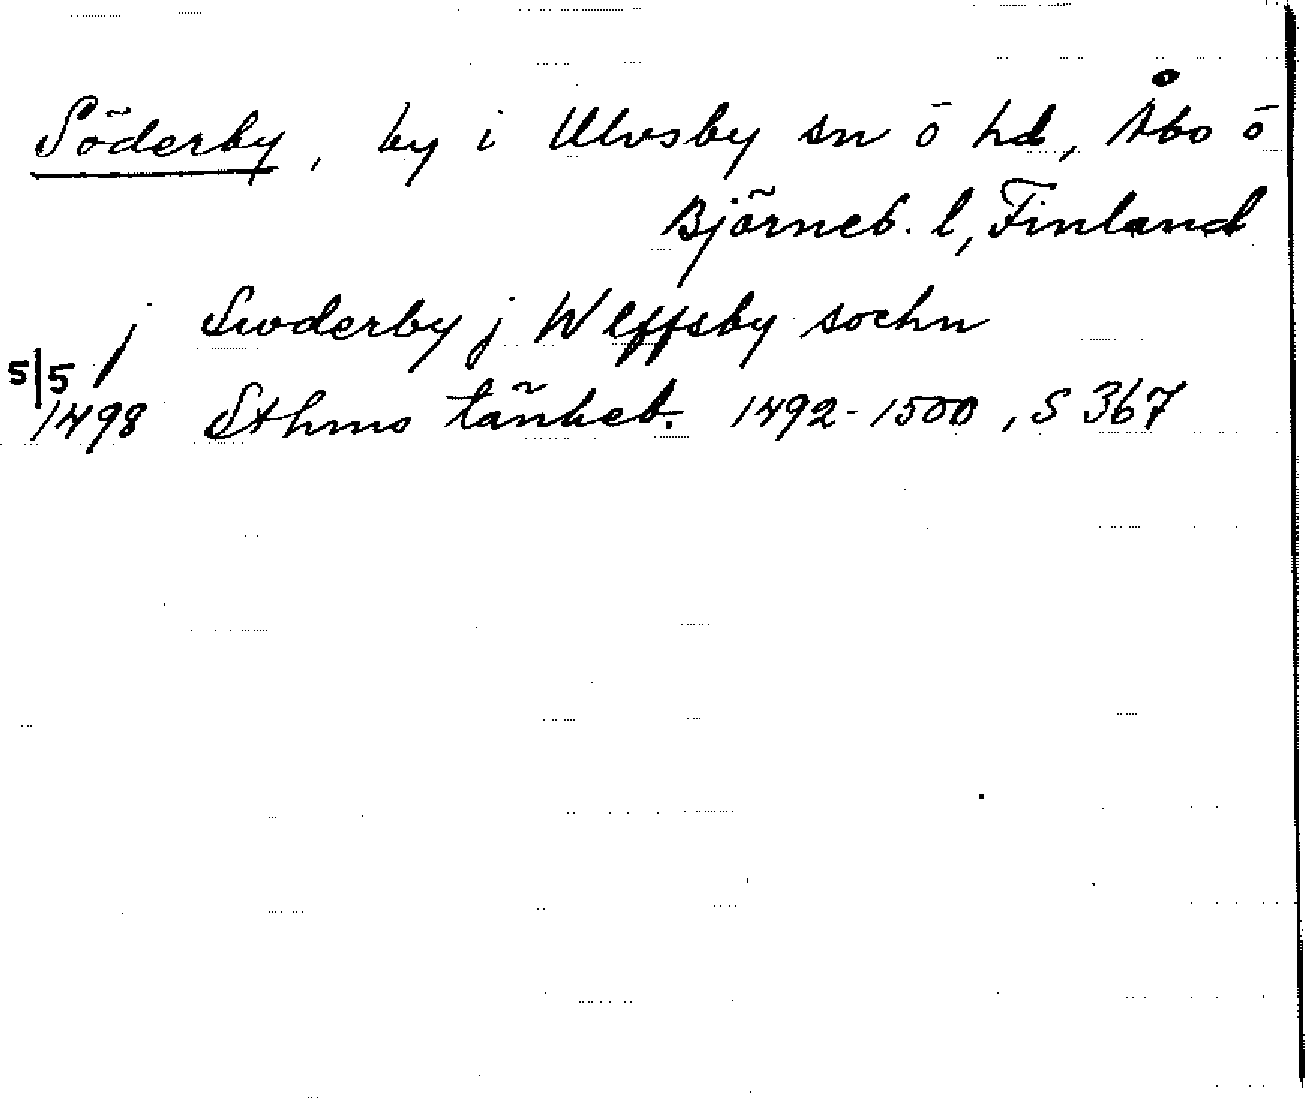 Söderby, by i Ulvsby sn ō hd, Åbo ō
Björneb. l, Finland
j Swderby j Wlffsby sochn
5/5
1498 Sthms tänkeb. 1492-1500, S 367